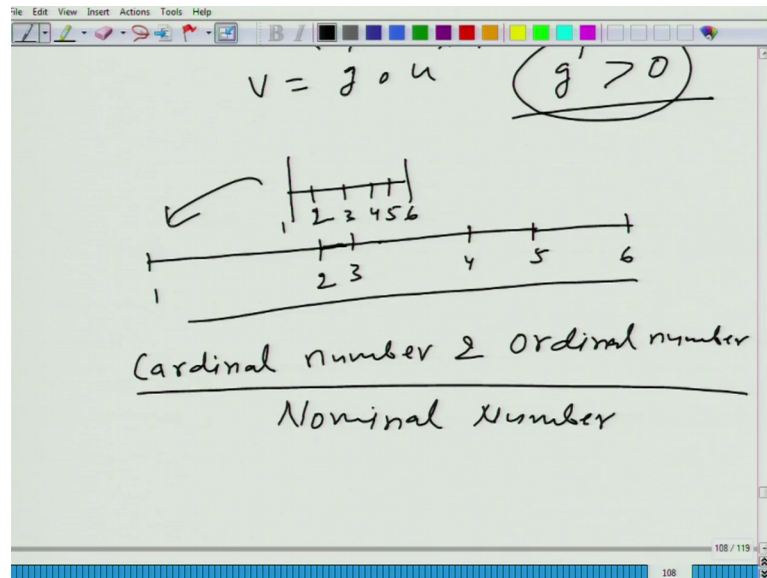 File Edit View Insert Actions Tools Help
B I
v = g o u g' > 0
1 2 3 4 5 6
1 2 3 4 5 6
Cardinal number & Ordinal number
Nominal Number
108 / 119
108